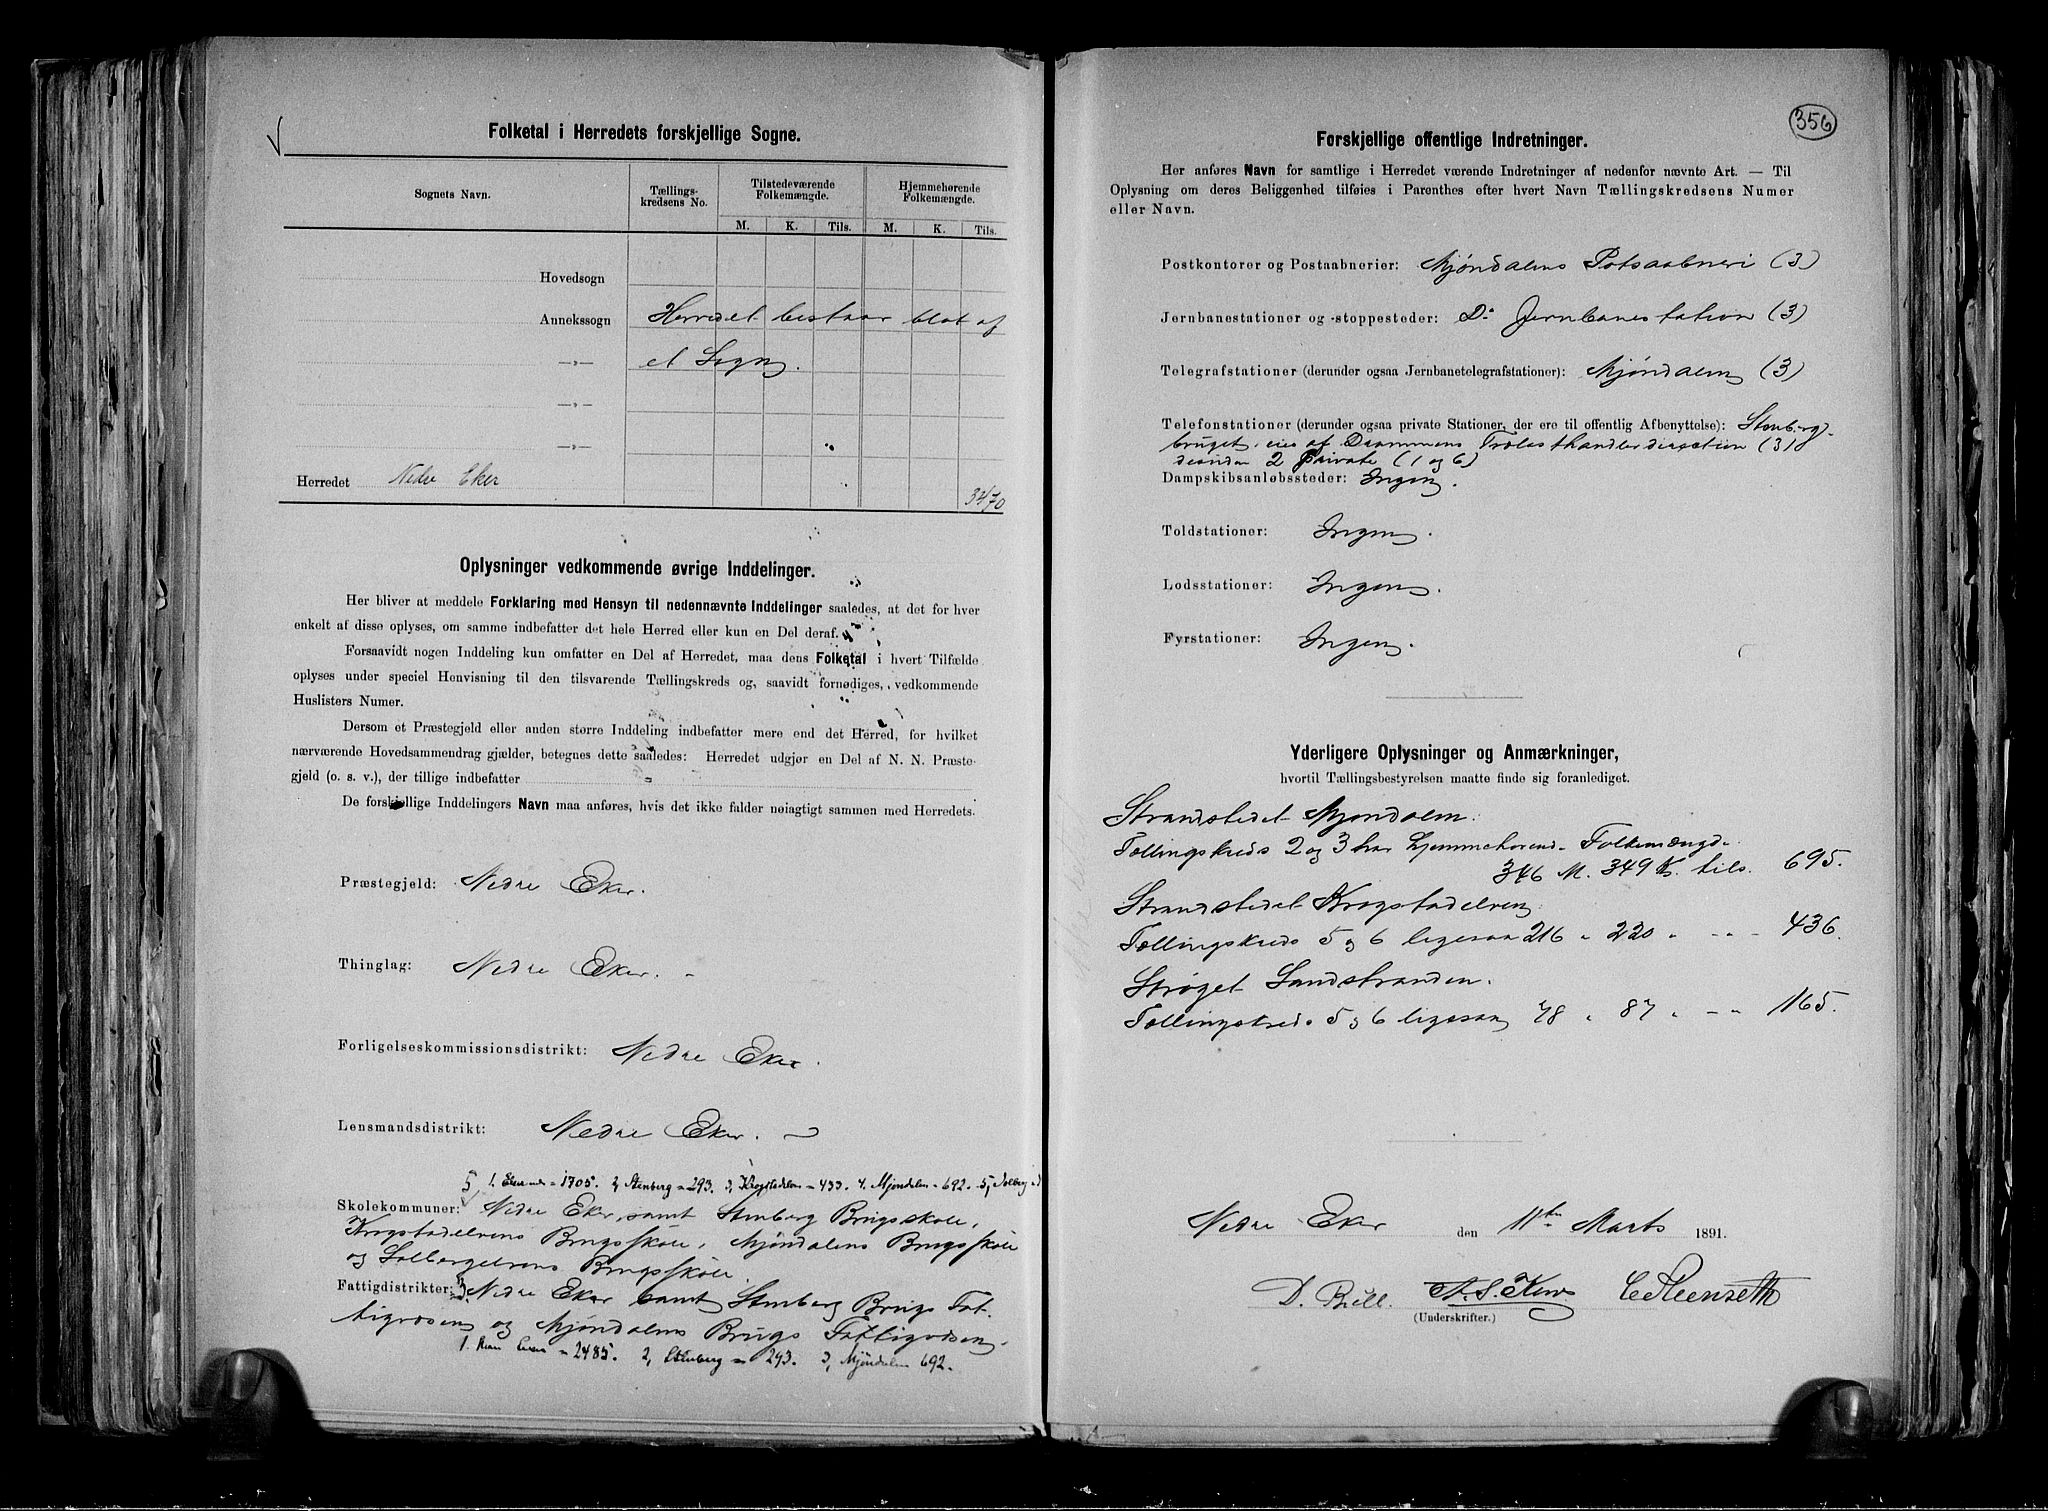 Folketal i Herredets forskjellige Sogne.
Sognets Navn.
Tællings-
kredsens No.
Tilstedeværende
Folkemængde.
Hjemmehørende
Folkemængde.
M. K. Tils. M. K. Tils.
Hovedsogn
Annekssogn Herredet bestaar blot af
—»— et Sogn.
—»—
—»—
Herredet Nedre Eker 3470
Oplysninger vedkommende øvrige Inddelinger.
Her bliver at meddele Forklaring med Hensyn til nedennævnte Inddelinger saaledes, at det for hver
enkelt af disse oplyses, om samme indbefatter det hele Herred eller kun en Del deraf.
Forsaavidt nogen Inddeling kun omfatter en Del af Herredet, maa dens Folketal i hvert Tilfælde
oplyses under speciel Henvisning til den tilsvarende Tællingskreds og, saavidt fornødiges, vedkommende
Huslisters Numer.
Dersom et Præstegjeld eller anden større Inddeling indbefatter mere end det Herred, for hvilket
nærværende Hovedsammendrag gjælder, betegnes dette saaledes: Herredet udgjør en Del af N. N. Præste-
gjeld (o. s. v.), der tillige indbefatter
De forskjellige Inddelingers Navn maa anføres, hvis det ikke falder nøiagtigt sammen med Herredets.
Præstegjeld: Nedre Eker.
Thinglag: Nedre Eker.
Forligelseskommissionsdistrikt: Nedre Eker.
Lensmandsdistrikt: Nedre Eker.
1705. 2, Stenberg = 293. 3, Krogstadelv = 433. 4. Mjøndalen = 692. 5, Solberg
Skolekommuner: Nedre Eker samt Stenberg Brugsskole,
Krogstadelvens Brugsskole, Mjøndalens Brugsskole
og Solbergelvens Brugsskole.
Fattigdistrikter: Nedre Eker samt Stenberg Brugs Fat-
tigvæsen og Mjøndalens Brugs Fattigvæsen.
= 2485. 2, Stenberg = 293. 3, Mjøndalen 692.
356
Forskjellige offentlige Indretninger.
Her anføres Navn for samtlige i Herredet værende Indretninger af nedenfor nævnte Art. — Til
Oplysning om deres Beliggenhed tilføies i Parenthes efter hvert Navn Tællingskredsens Numer
eller Navn.
Postkontorer og Postaabnerier: Mjøndalens Potsaabneri (3)
Jernbanestationer og -stoppesteder: Do Jernbanestation (3)
Telegrafstationer (derunder ogsaa Jernbanetelegrafstationer): Mjøndalen (3)
Telefonstationer (derunder ogsaa private Stationer, der ere til offentlig Afbenyttelse): Stenberg-
bruget, eies af Drammens Trælasthandlerdirection (3)
desuden 2 private (1 og 6)
Dampskibsanløbssteder: Ingen.
Toldstationer: Ingen.
Lodsstationer: Ingen.
Fyrstationer: Ingen.
Yderligere Oplysninger og Anmærkninger,
hvortil Tællingsbestyrelsen maatte finde sig foranlediget.
Strandstedet Mjøndalen.
Tællingskreds 2 og 3 har hjemmehørende Folkemængde
346 M. 349 K. tils. 695.
Strandstedet Krogstadelven
Tællingskreds 5 og 6 ligesaa 216 " 220 " - - 436.
Strøget Sandstranden.
Tællingskreds 5 og 6 ligesaa 78 " 87 " - " 165.
Nedre Eker den 11te Marts 1891.
(Underskrifter.)